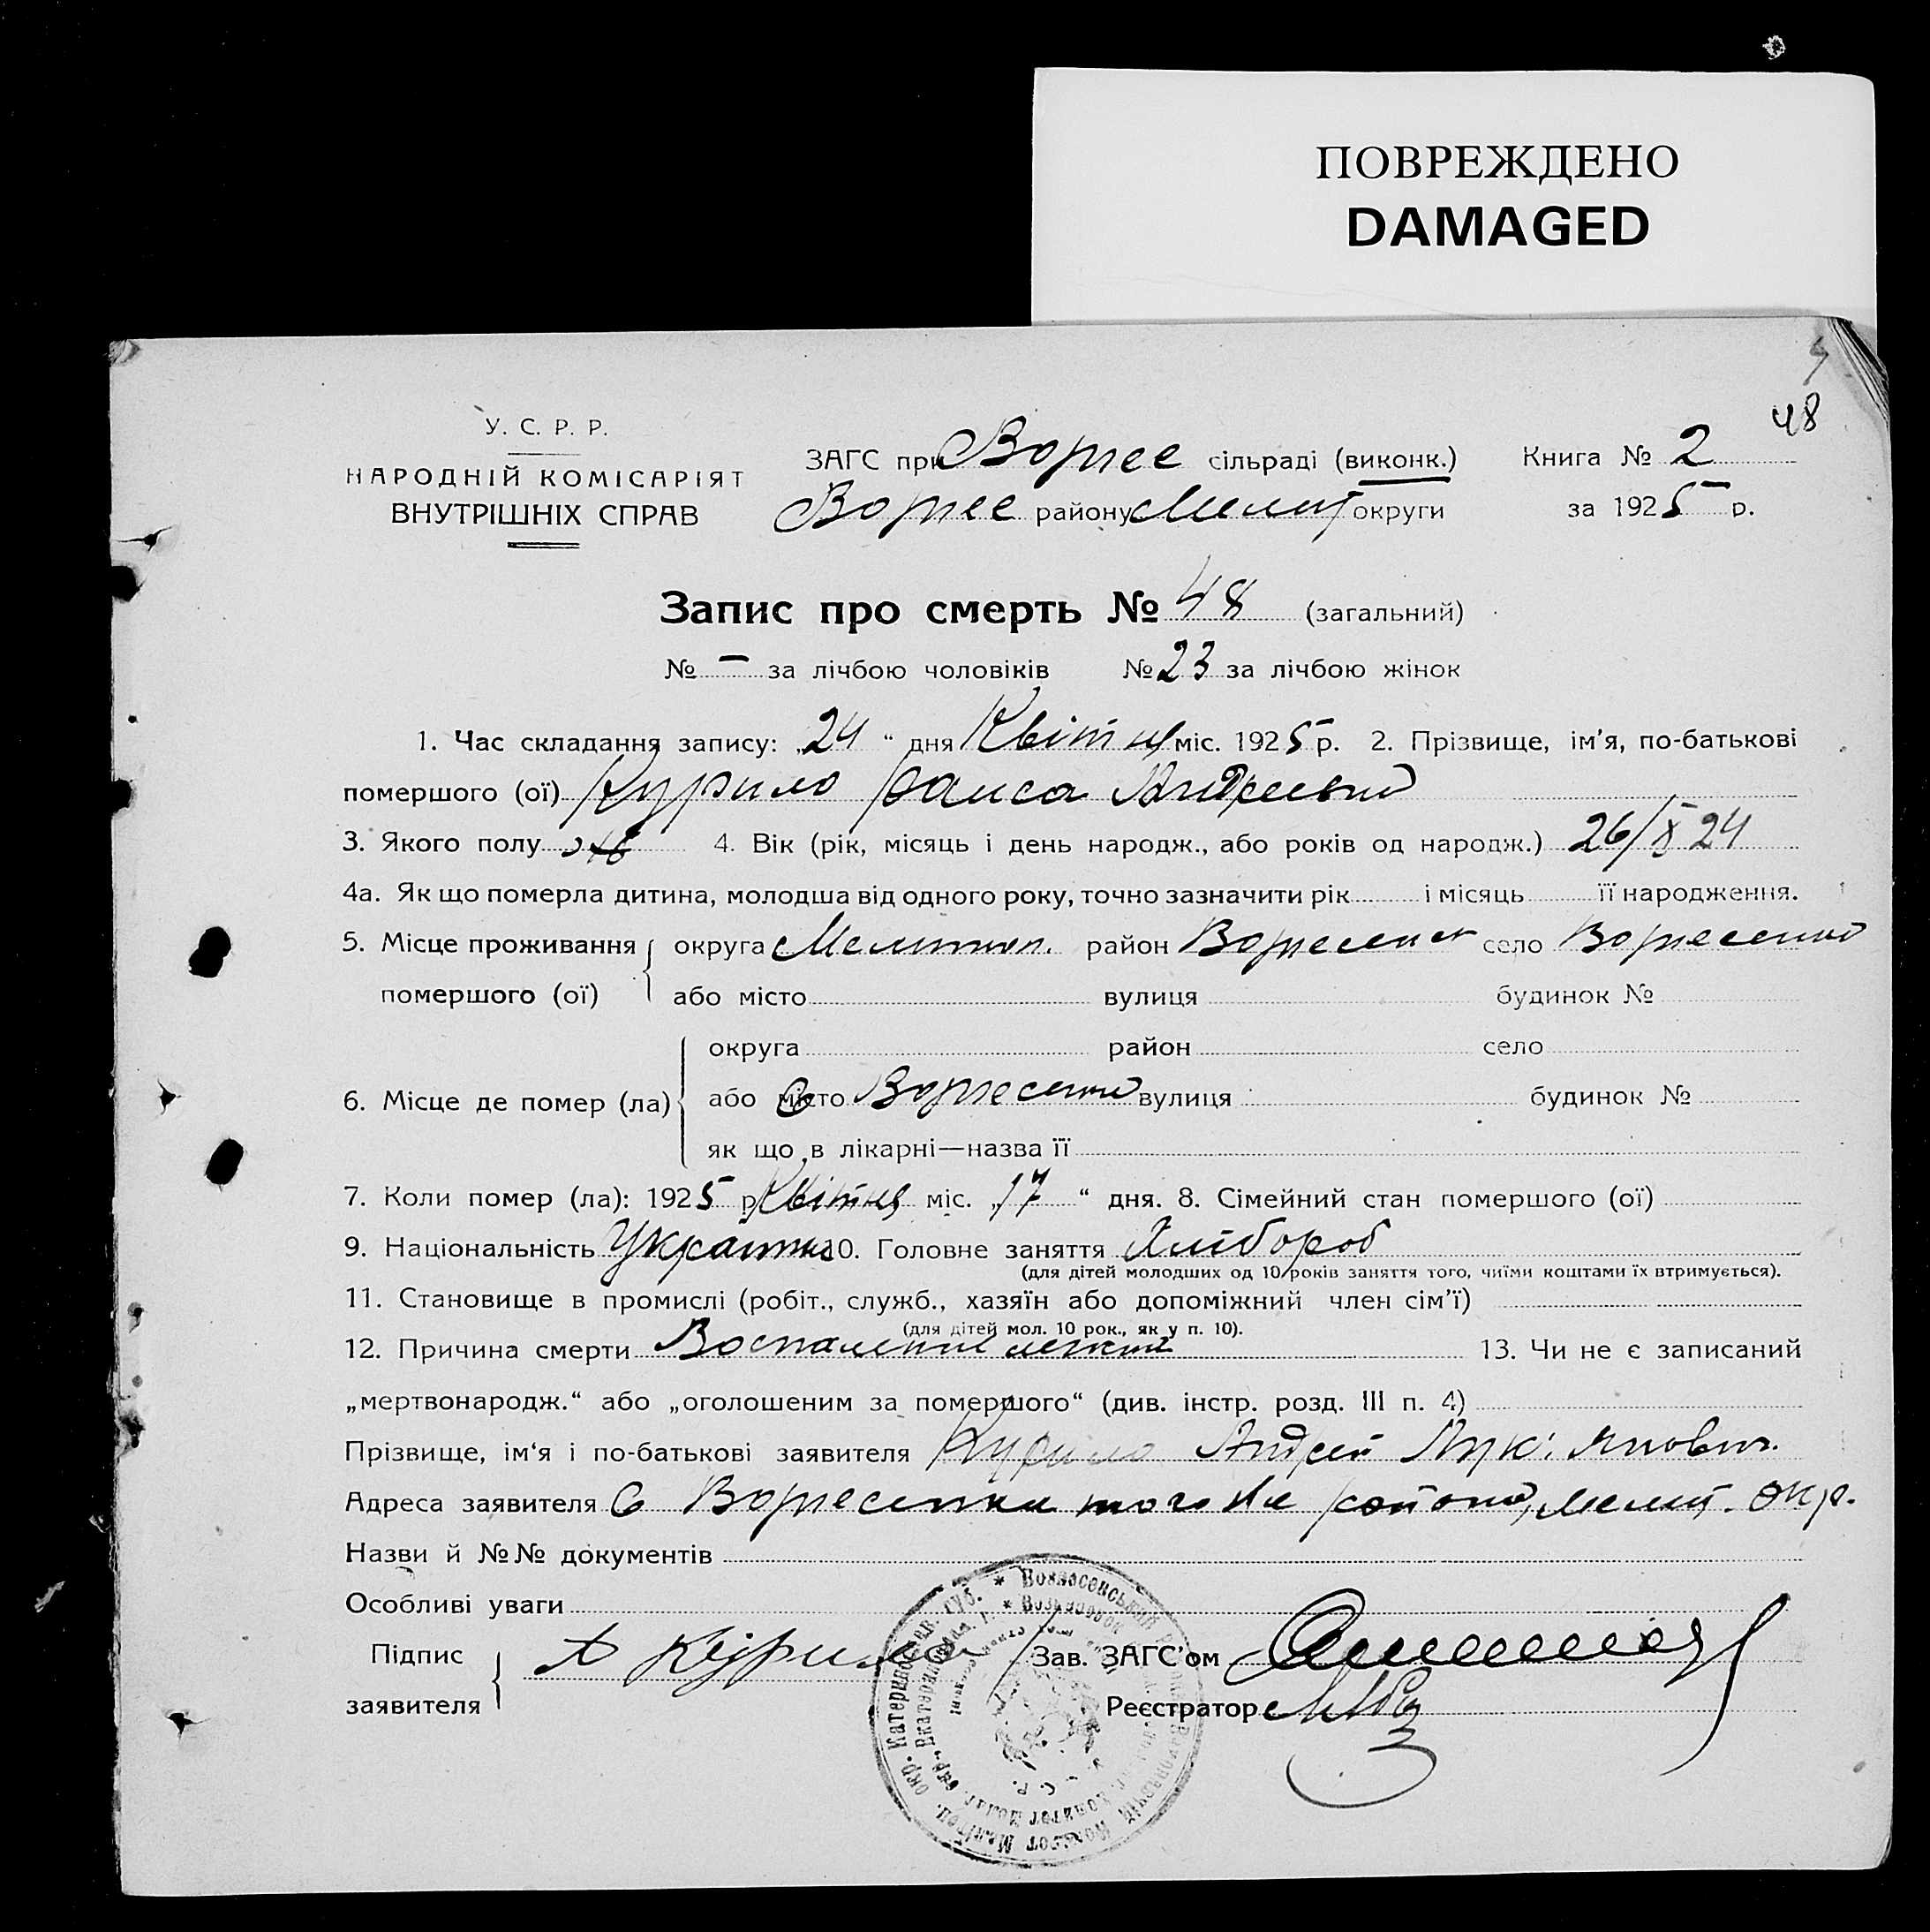 ПОВРЕЖДЕНО
DAMAGED
48
У. С. Р. Р.
НАРОДНІЙ КОМІСАРІЯТ
ВНУТРІШНІХ СПРАВ
ЗАГС при Вознес сільраді (виконк.) Книга № 2
Вознес району Мелит округи за 1925 р.
Запис про смерть № 48 (загальний)
№ – за лічбою чоловіків № 23 за лічбою жінок
1. Час складання запису: „24“ дня Квітня міс. 1925 р. 2. Прізвище, ім'я, по-батькові
помершого (ої) Курило Раиса Андреевна
3. Якого полу ж 4. Вік (рік, місяць і день народж., або років од народж.) 26/X 24
4а. Як що померла дитина, молодша від одного року, точно зазначити рік і місяць її народження.
5. Місце проживання помершого (ої) округа Мелитоп. район Вознесенск село Вознесенка
або місто вулиця будинок №
6. Місце де помер (ла) округа район село
або місто С Вознесенка вулиця будинок №
як що в лікарні—назва її
7. Коли помер (ла): 1925 р. Квітня міс. „17“ дня. 8. Сімейний стан помершого (ої)
9. Національність Украинка 10. Головне заняття Хлибороб
(для дітей молодших од 10 років заняття того, чиїми коштами їх втримується).
11. Становище в промислі (робіт., служб., хазяїн або допоміжний член сім'ї)
(для дітей мол. 10 рок., як у п. 10).
12. Причина смерти Воспаление легких 13. Чи не є записаний
„мертвонародж.“ або „оголошеним за помершого“ (див. інстр. розд. III п. 4)
Прізвище, ім'я і по-батькові заявителя Курило Андрей Лук'янович
Адреса заявителя С Вознесенка того же района, мелит. окр.
Назви й №№ документів
Особливі уваги
Підпис заявителя А Курило Зав. ЗАГС'ом
Реєстратор